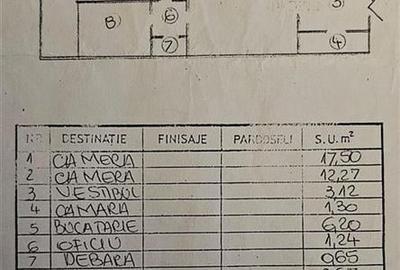 3)
8)
6
7
4
NR. DESTINATIE FINISAJE PARDOSELI S.U. m²
1 CAMERA 17,50
2 CAMERA 12,27
3 VESTIBUL 3,12
4 CAMARA 1,30
5 BUCATARIE 6,20
6 OFICIU 1,24
7 DEBARA 0,65